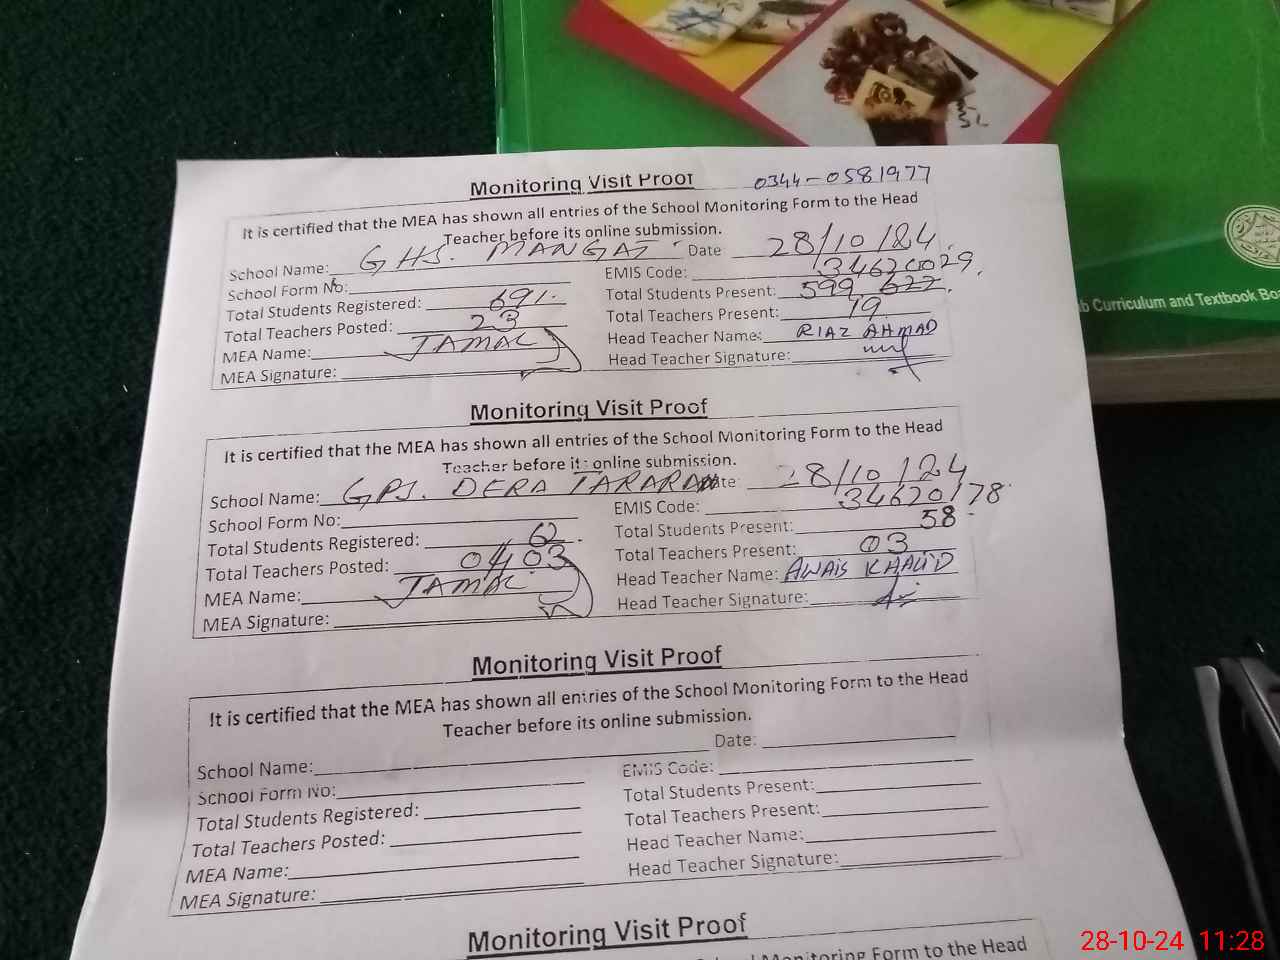 Monitoring Visit Proof 0344-0581977
It is certified that the MEA has shown all entries of the School Monitoring Form to the Head
Teacher before its online submission.
School Name: GHS. MANGAT Date 28/10/24
School Form No: EMIS Code: 34620029
Total Students Registered: 691 Total Students Present: 599 622
Total Teachers Posted: 23 Total Teachers Present: 19
MEA Name: JAMAL Head Teacher Name: RIAZ AHMAD
MEA Signature: Head Teacher Signature:
Monitoring Visit Proof
It is certified that the MEA has shown all entries of the School Monitoring Form to the Head
Teacher before its online submission.
School Name: GPS. DERA TARARAN Date: 28/10/24
School Form No: EMIS Code: 34620178
Total Students Registered: 62 Total Students Present: 58
Total Teachers Posted: 04 03 Total Teachers Present: 03
MEA Name: JAMAL Head Teacher Name: AWAIS KHALID
MEA Signature: Head Teacher Signature:
Monitoring Visit Proof
It is certified that the MEA has shown all entries of the School Monitoring Form to the Head
Teacher before its online submission.
School Name: Date:
School Form No: EMIS Code:
Total Students Registered: Total Students Present:
Total Teachers Posted: Total Teachers Present:
MEA Name: Head Teacher Name:
MEA Signature: Head Teacher Signature:
Monitoring Visit Proof
School Monitoring Form to the Head
Curriculum and Textbook
28-10-24 11:28